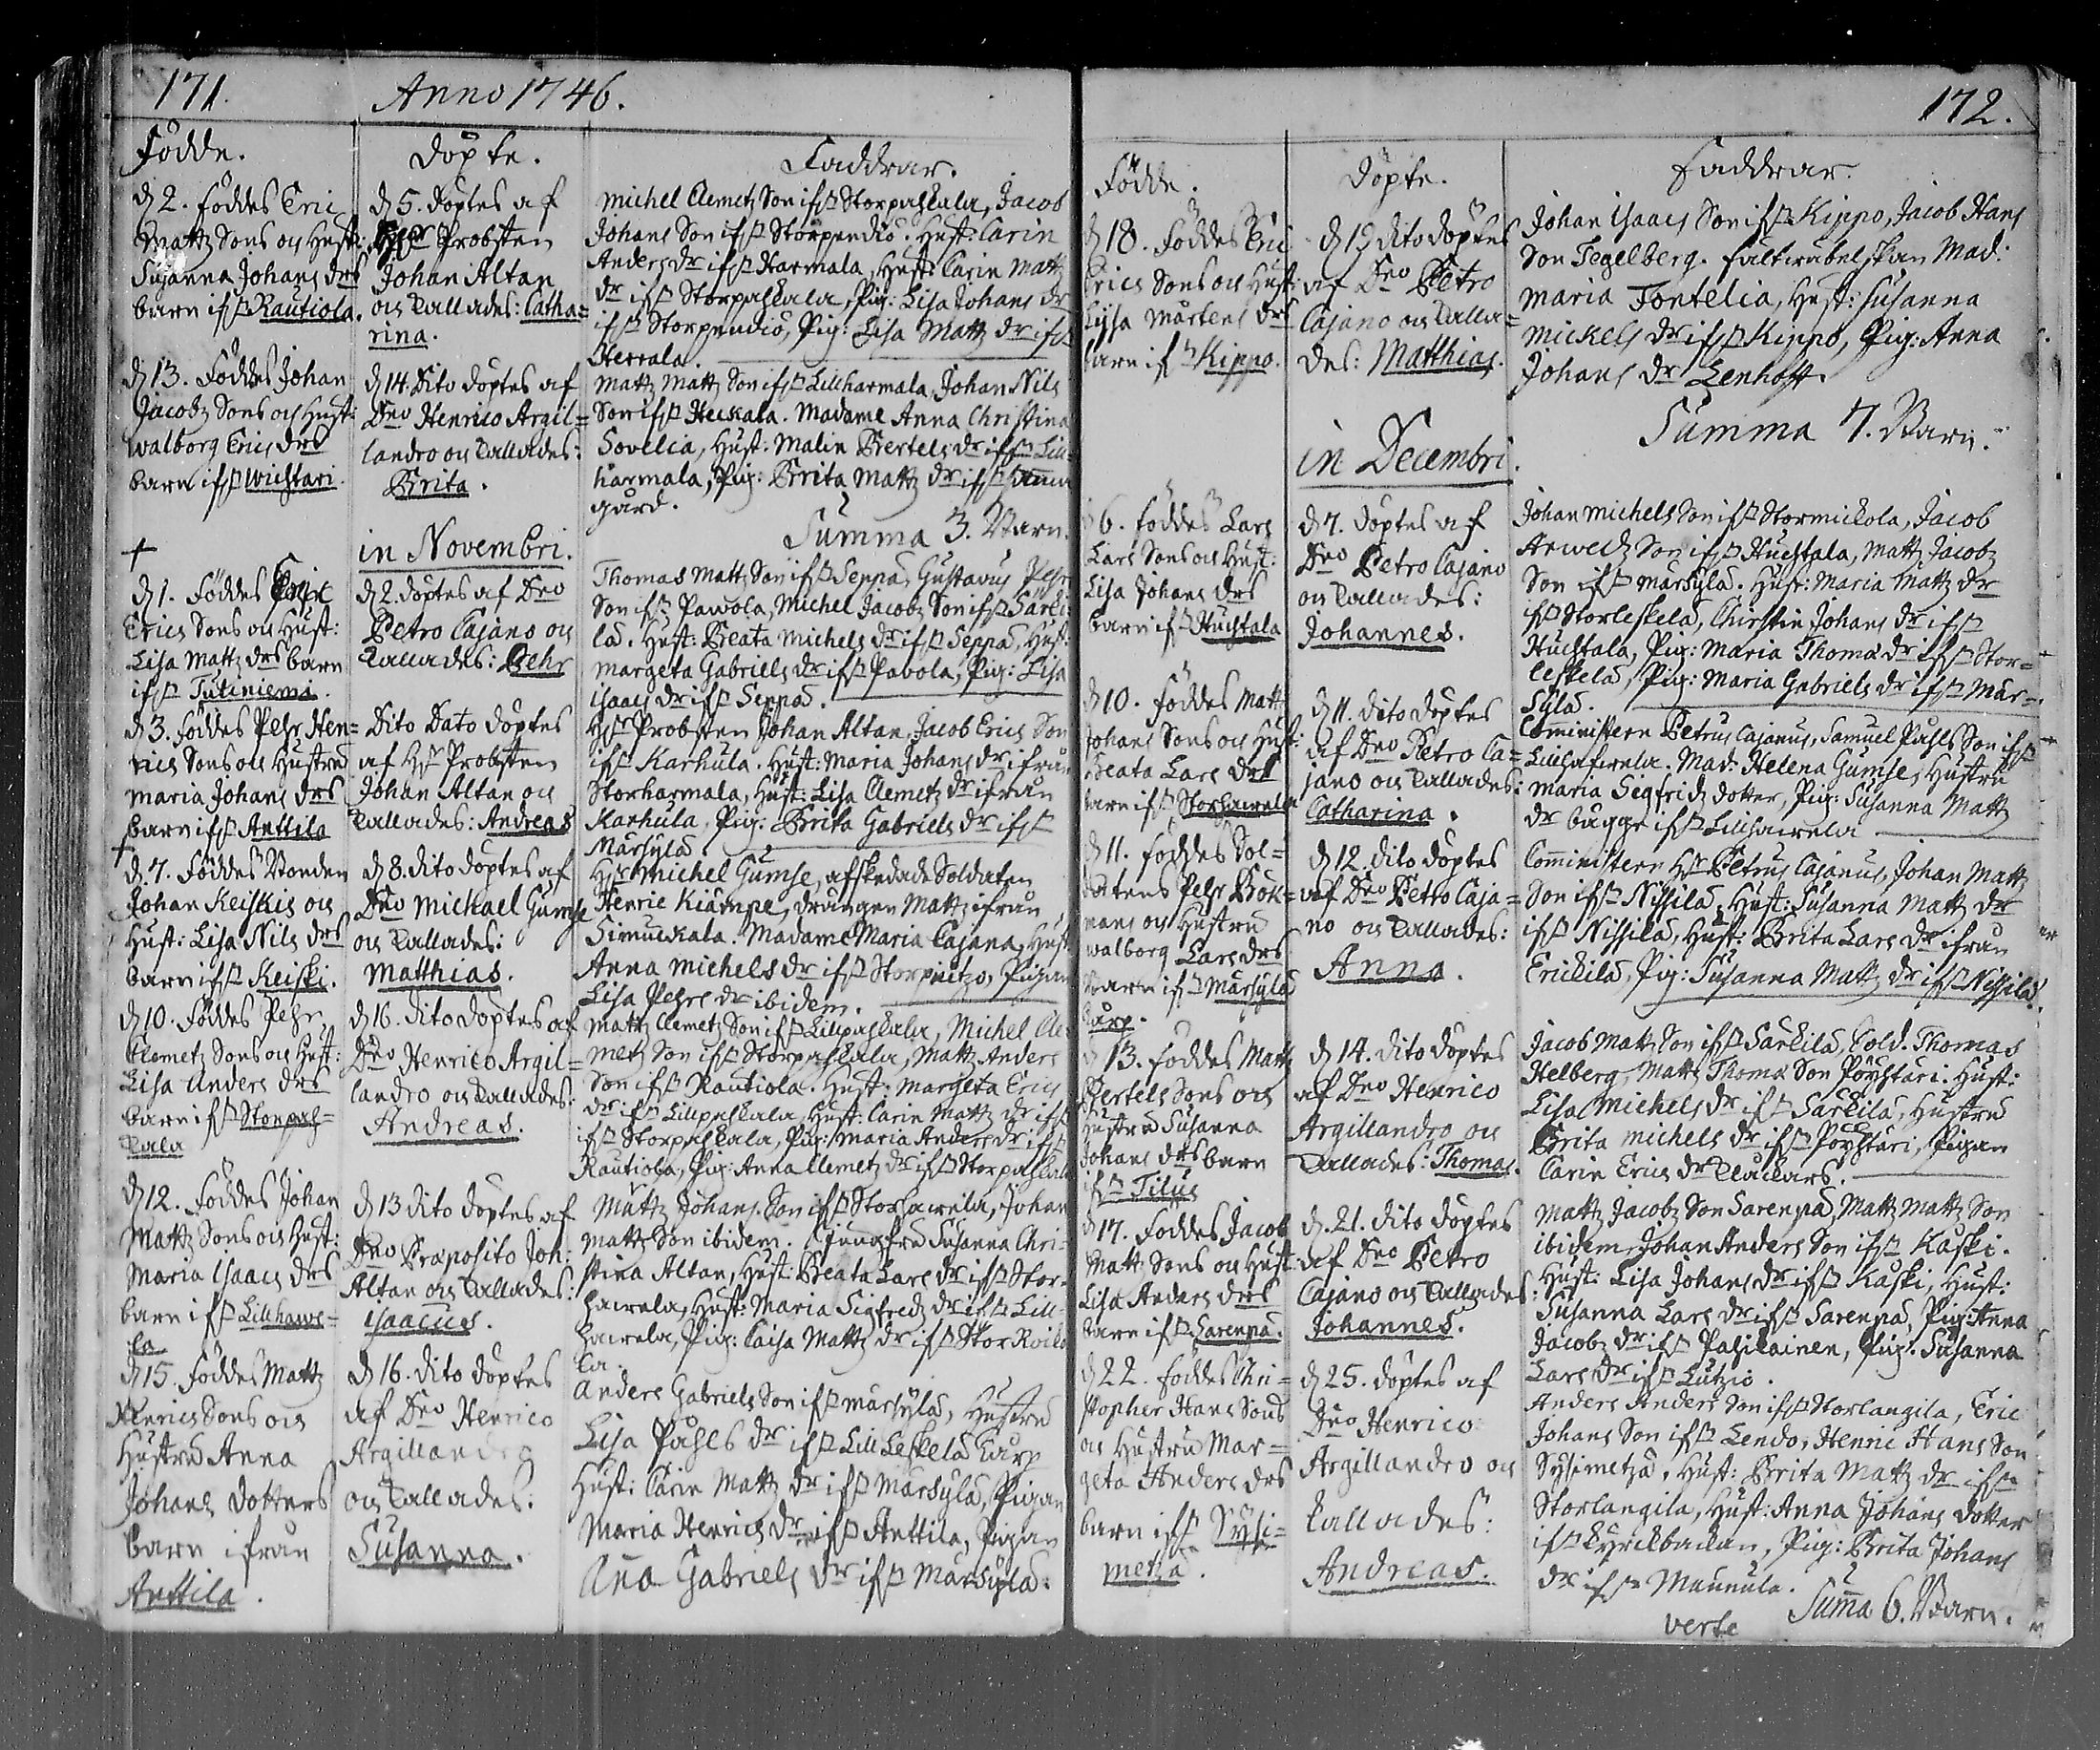 171.
Anno 1746.
Födde.
d 2. föddes Eric
Mattz Sons och Hust:
Susanna Johans drs
barn ifrn Rautiola.
d 13. Föddes Johan
Jacobz Sons och Hust:
Walborg Erics drs
barn ifrn Wichtari.
d 1. Föddes
Erics Sons och Hust:
Lisa Mattz drs barn
ifrn Tutiniemi.
d 3. Föddes Pehr Hen=
rics Sons och Hustru
Maria Johans drs
barn ifrn Anttila
d. 7. Föddes Bonden
Johan Keiskis och
Hust: Lisa Nils drs
barn ifrn Keiski.
d 10. Föddes Pehr
Clemetz Sons och Hust:
Lisa Anders drs
barn ifrn Storpas=
kala
d 12. Föddes Johan
Mattz Sons och Hust:
Maria Isaacs drs
barn ifrn Lillhawe=
la
d 15. Föddes Mattz
Henrics Sons och
Hustru Anna
Johans Dotters
barn ifrån
Anttila.
Döpte.
d 5. döptes af
Hr Probsten
Johan Altan
och kallades: Catha=
rina.
d 14. dito döptes af
Dno Henrico Argil=
landro och kallades:
Brita.
in Novembri.
d 2. döptes af Dno
Petro Cajano och
kallades: Pehr
Dito Dato döptes
af Hr Probsten
Johan Altan och
kallades: Andreas
d 8. dito döptes af
Dno Michael Gumse
och kallades:
Matthias.
d 16. dito döptes af
Dno Henrico Argil=
landro och kallades:
Andreas.
d 13 dito döptes af
Dno Præposito Joh:
Altan och kallades:
Isaacus.
d 16. dito döptes
af Dno Henrico
Argillandro
och kallades:
Susanna.
Faddrar.
Michel Clemetz Son ifrn Storpaskala, Jacob
Johans Son ifrn Storpendiö. Hust: Carin
Anders dr ifrn Harmala, Hust: Carin Mattz
dr ifrn Storpaskala, Pig: Lisa Johans dr
ifrn Storpendiö, Pig: Lisa Mattz dr ifrn
Herrala.
Mattz Mattz Son ifrn Lillharmala, Johan Nils
Son ifrn Heickala. Madame Anna Christina
Sovelia, Hust: Malin Bertels dr ifrn Lill=
harmala, Pig: Brita Mattz dr ifrn samma
gård.
Summa 3. Barn.
Thomas Mattz Son ifrn Seppä, Gustavus Pehrs
Son ifrn Pawola, Michel Jacobz Son ifrn Särki=
lä. Hust: Beata Michels dr ifrn Seppä, Hust:
Margeta Gabriels dr ifrn Pavola, Pig: Lisa
Isaacs dr ifrn Seppä.
Hr Probsten Johan Altan, Jacob Erics Son
ifrn Karhula. Hust: Maria Johans dr ifrån
Storharmala, Hust: Lisa Clemetz dr ifrån
Karhula, Pig: Brita Gabriels dr ifrn
Märsylä
Hr Michel Gumse, afskedade Soldaten
Henric Kiämpe, drängen Mattz ifrån
Simuckala. Madame Maria Cajana, Hust:
Anna Michels dr ifrn Storpuetzo, Pigan
Lisa Pehrs dr ibidem.
Mattz Clemetz Son ifrn Lillpaskala, Michel Cle=
metz Son ifrn Storpaskala, Mattz Anders
Son ifrn Rautiola. Hust: Margeta Erics
dr ifrn Lillpaskala, Hust: Carin Mattz dr
ifrn Storpaskala, Pig: Maria Anders dr ifrn
Rautiola, Pig: Anna Clemetz dr ifrn Storpaskala
Mattz Johans Son ifrn Storhawela, Johan
Mattz Son ibidem. Jungfru Susanna Chri=
stina Altan, Hust: Beata Lars dr ifrn Stor=
hawela, Hust: Maria Sigfredz dr ifrn Lill=
hawela, Pig: Caisa Mattz dr ifrn Stor Roiko
la.
Anders Gabriels Son ifrn Märsylä, Hustru
Lisa Pahls dr ifrn Lill Leskelä Karp
Hust: Carin Mattz dr ifrn Märsylä, Pigan
Maria Henrics dr ifrn Anttila, Pigan
Ana Gabriels dr ifrn Märsylä.
172.
Födde.
d 18. Föddes Eric
Erics Sons och Hust:
Lisa Mårtens drs
barn ifrn Kippo.
6. föddes Lars
Lars Sons och Hust:
Lisa Johans drs
barn ifrn Huchtala
d 10. Föddes Mattz
Johans Sons och Hust:
Beata Lars drs
barn ifrn Storhawela
d 11. föddes Sol=
datens Pehr Bök=
mans och Hustru
Walborg Lars drs
barn ifrn Märsylä
Karp.
13. Föddes Mattz
Bertels Sons och
Hustru Susanna
Johans drs barn
ifrn Tilus
d 17. Föddes Jacob
Mattz Sons och Hust:
Lisa Anders drs
barn ifrn Sarenpä.
d 22. föddes Chri=
stopher Hans Sons
och Hustru Mar=
geta Anders drs
barn ifrn Sysi=
metzä.
Döpte.
d 19 dito döptes
af Dno Petro
Cajano och kalla=
des: Matthias.
in Decembri.
d 7. döptes af
Dno Petro Cajano
och kallades:
Johannes.
d 11. dito döptes
af Dno Petro Ca=
jano och kallades:
Catharina.
d 12. dito döptes
af Dno Petro Caja=
no och kallades:
Anna.
d 14. dito döptes
af Dno Henrico
Argillandro och
kallades: Thomas.
d. 21. dito döptes
af Dno Petro
Cajano och kallades:
Johannes.
d 25. döptes af
Dno Henrico
Argillandro och
kallades:
Andreas.
Faddrar.
Johan Isaacs Son ifrn Kippo, Jacob Hans
Son Tegelberg. fältwäbelskan Mad:
Maria Fontelia, Hust: Susanna
Mickels dr ifrn Kippo, Pig: Anna
Johans dr Lenhoft.
Summa 7. Barn.
Johan Michels Son ifrn Stormickola, Jacob
Arwedz Son ifrn Huchtala, Mattz Jacobz
Son ifrn Märsylä. Hust: Maria Mattz dr
ifrn Storleskelä, Christin Johans dr ifrn
Huchtala, Pig: Maria Thomæ dr ifrn Stor=
leskelä, Pig: Maria Gabriels dr ifrn Mär=
sylä.
Comministern Petrus Cajanus, Samuel Pahls Son ifrn
Lillhawela. Mad: Helena Gumse, Hustru
Maria Sigfridz dotter, Pig: Susanna Mattz
dr Bagge ifrn Lillhawela
Comministern Hr Petrus Cajanus, Johan Mattz
Son ifrn Nissilä, Hust: Susanna Mattz dr
ifrn Nissilä, Hust: Brita Lars dr ifrån
Erickilä, Pig: Susanna Mattz dr ifrn Nissilä.
Jacob Mattz Son ifrn Särkilä, Sold. Thomas
Helberg, Mattz Thomæ Son Pöystäri. Hust:
Lisa Michels dr ifrn Särkilä, Hustru
Brita Michels dr ifrn Pöystäri, Pigan
Carin Erics dr Klackars.
Mattz Jacobz Son Sarenpä, Mattz Mattz Son
ibidem, Johan Anders Son ifrn Kaski.
Hust: Lisa Johans dr ifrn Kaski, Hust:
Susanna Lars dr ifrn Sarenpä, Pig: Anna
Jacobz dr ifrn Pasikainen, Pig: Susanna
Lars dr ifrn Lutzio.
Anders Anders Son ifrn Storlangila, Eric
Johans Son ifrn Lendo, Henric Hans Son
Sysimetzä, Hust: Brita Mattz dr ifrn
Storlangila, Hust: Anna Johans dotter
ifrn Kyrckbackan, Pig: Brita Johans
dr ifrn Maunula.
Suma 6. Barn.
verte